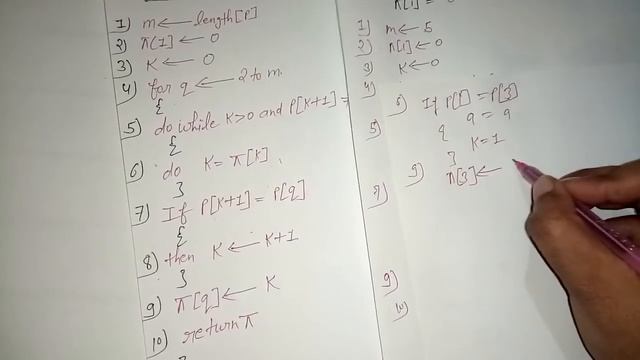 1) m ← length[P]
2) π(1] ← 0
3) K ← 0
4) for q ← 2 to m.
{
5) do while K>0 and P[K+1] =
{
6) do K = π[K] ;
}
7) If P[K+1] = P[q]
{
8) then K ← K+1
}
9) π[q] ← K
10) return π
1) m ← 5
2) π[1] ← 0
3) K ← 0
4)
5)
7)
If P[1] = P[3]
a = a
{
K = 1
}
9) π[3] ←
9)
10)